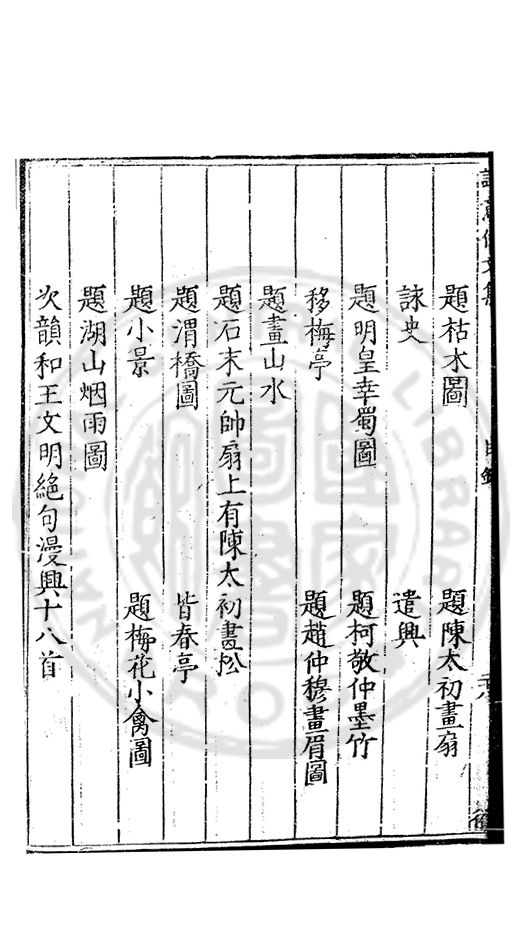 題枯木圖　題陳太初畫扇
詠史　遣興
題明皇幸蜀圖　題柯敬仲墨竹
移梅亭　題趙仲穆畫眉圖
題畫山水
題石末元帥扇上有陳太初畫松
題渭橋圖　皆春亭
題小景　題梅花小禽圖
題湖山烟雨圖
次韻和王文明絕句漫興十八首